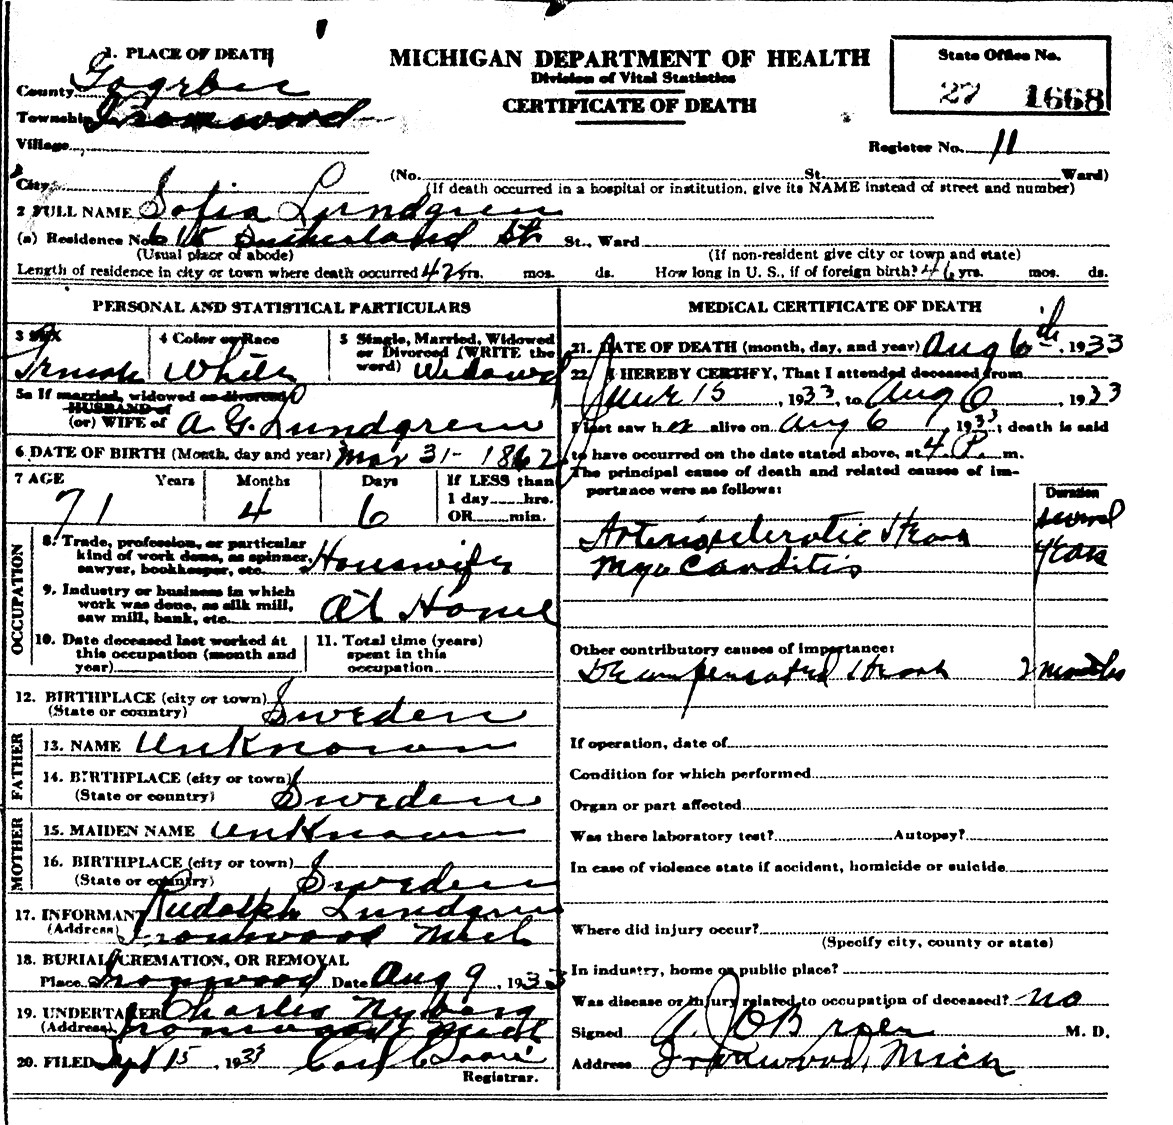 1. PLACE OF DEATH
MICHIGAN DEPARTMENT OF HEALTH
Division of Vital Statistics
CERTIFICATE OF DEATH
State Office No.
27 1668
County Gogebic
Township Ironwood
Village
Register No. 11
City
(No. St. Ward)
(If death occurred in a hospital or institution, give its NAME instead of street and number)
2 FULL NAME Sofia Lundgren
(a) Residence No. 615 Sutherland St St., Ward
(Usual place of abode) (If non-resident give city or town and state)
Length of residence in city or town where death occurred 42 yrs. mos. ds. How long in U. S., if of foreign birth? 46 yrs. mos. ds.
PERSONAL AND STATISTICAL PARTICULARS
3 SEX Female
4 Color or Race White
5 Single, Married, Widowed or Divorced (WRITE the word) Widowed
5a If married, widowed or divorced
HUSBAND of
(or) WIFE of A. G. Lundgren
6 DATE OF BIRTH (Month, day and year) Mar 31- 1862
7 AGE Years Months Days If LESS than
1 day hrs.
OR min.
71 4 6
OCCUPATION
8. Trade, profession, or particular
kind of work done, as spinner,
sawyer, bookkeeper, etc. Housewife
9. Industry or business in which
work was done, as silk mill,
saw mill, bank, etc. At Home
10. Date deceased last worked at
this occupation (month and
year)
11. Total time (years)
spent in this
occupation
12. BIRTHPLACE (city or town)
(State or country) Sweden
FATHER
13. NAME Unknown
14. BIRTHPLACE (city or town)
(State or country) Sweden
MOTHER
15. MAIDEN NAME Unknown
16. BIRTHPLACE (city or town)
(State or country) Sweden
17. INFORMANT Rudolph Lundgren
(Address) Ironwood Mich
18. BURIAL, CREMATION, OR REMOVAL
Place Ironwood Date Aug 9, 1933
19. UNDERTAKER Charles Nyberg
(Address) Ironwood Mich
20. FILED Sept 15, 1933
Registrar.
MEDICAL CERTIFICATE OF DEATH
21. DATE OF DEATH (month, day, and year) Aug 6th, 1933
22. I HEREBY CERTIFY, That I attended deceased from
June 15, 1933, to Aug 6, 1933
I last saw her alive on Aug 6, 1933; death is said
to have occurred on the date stated above, at 4 P. m.
The principal cause of death and related causes of im-
portance were as follows:
Duration
Arteriosclerotic Heart several
Myocarditis years
Other contributory causes of importance:
Decompensated Heart 2 months
If operation, date of
Condition for which performed
Organ or part affected
Was there laboratory test? Autopsy?
In case of violence state if accident, homicide or suicide
Where did injury occur?
(Specify city, county or state)
In industry, home or public place?
Was disease or injury related to occupation of deceased? no
Signed A. J. O'Brien M. D.
Address Ironwood, Mich